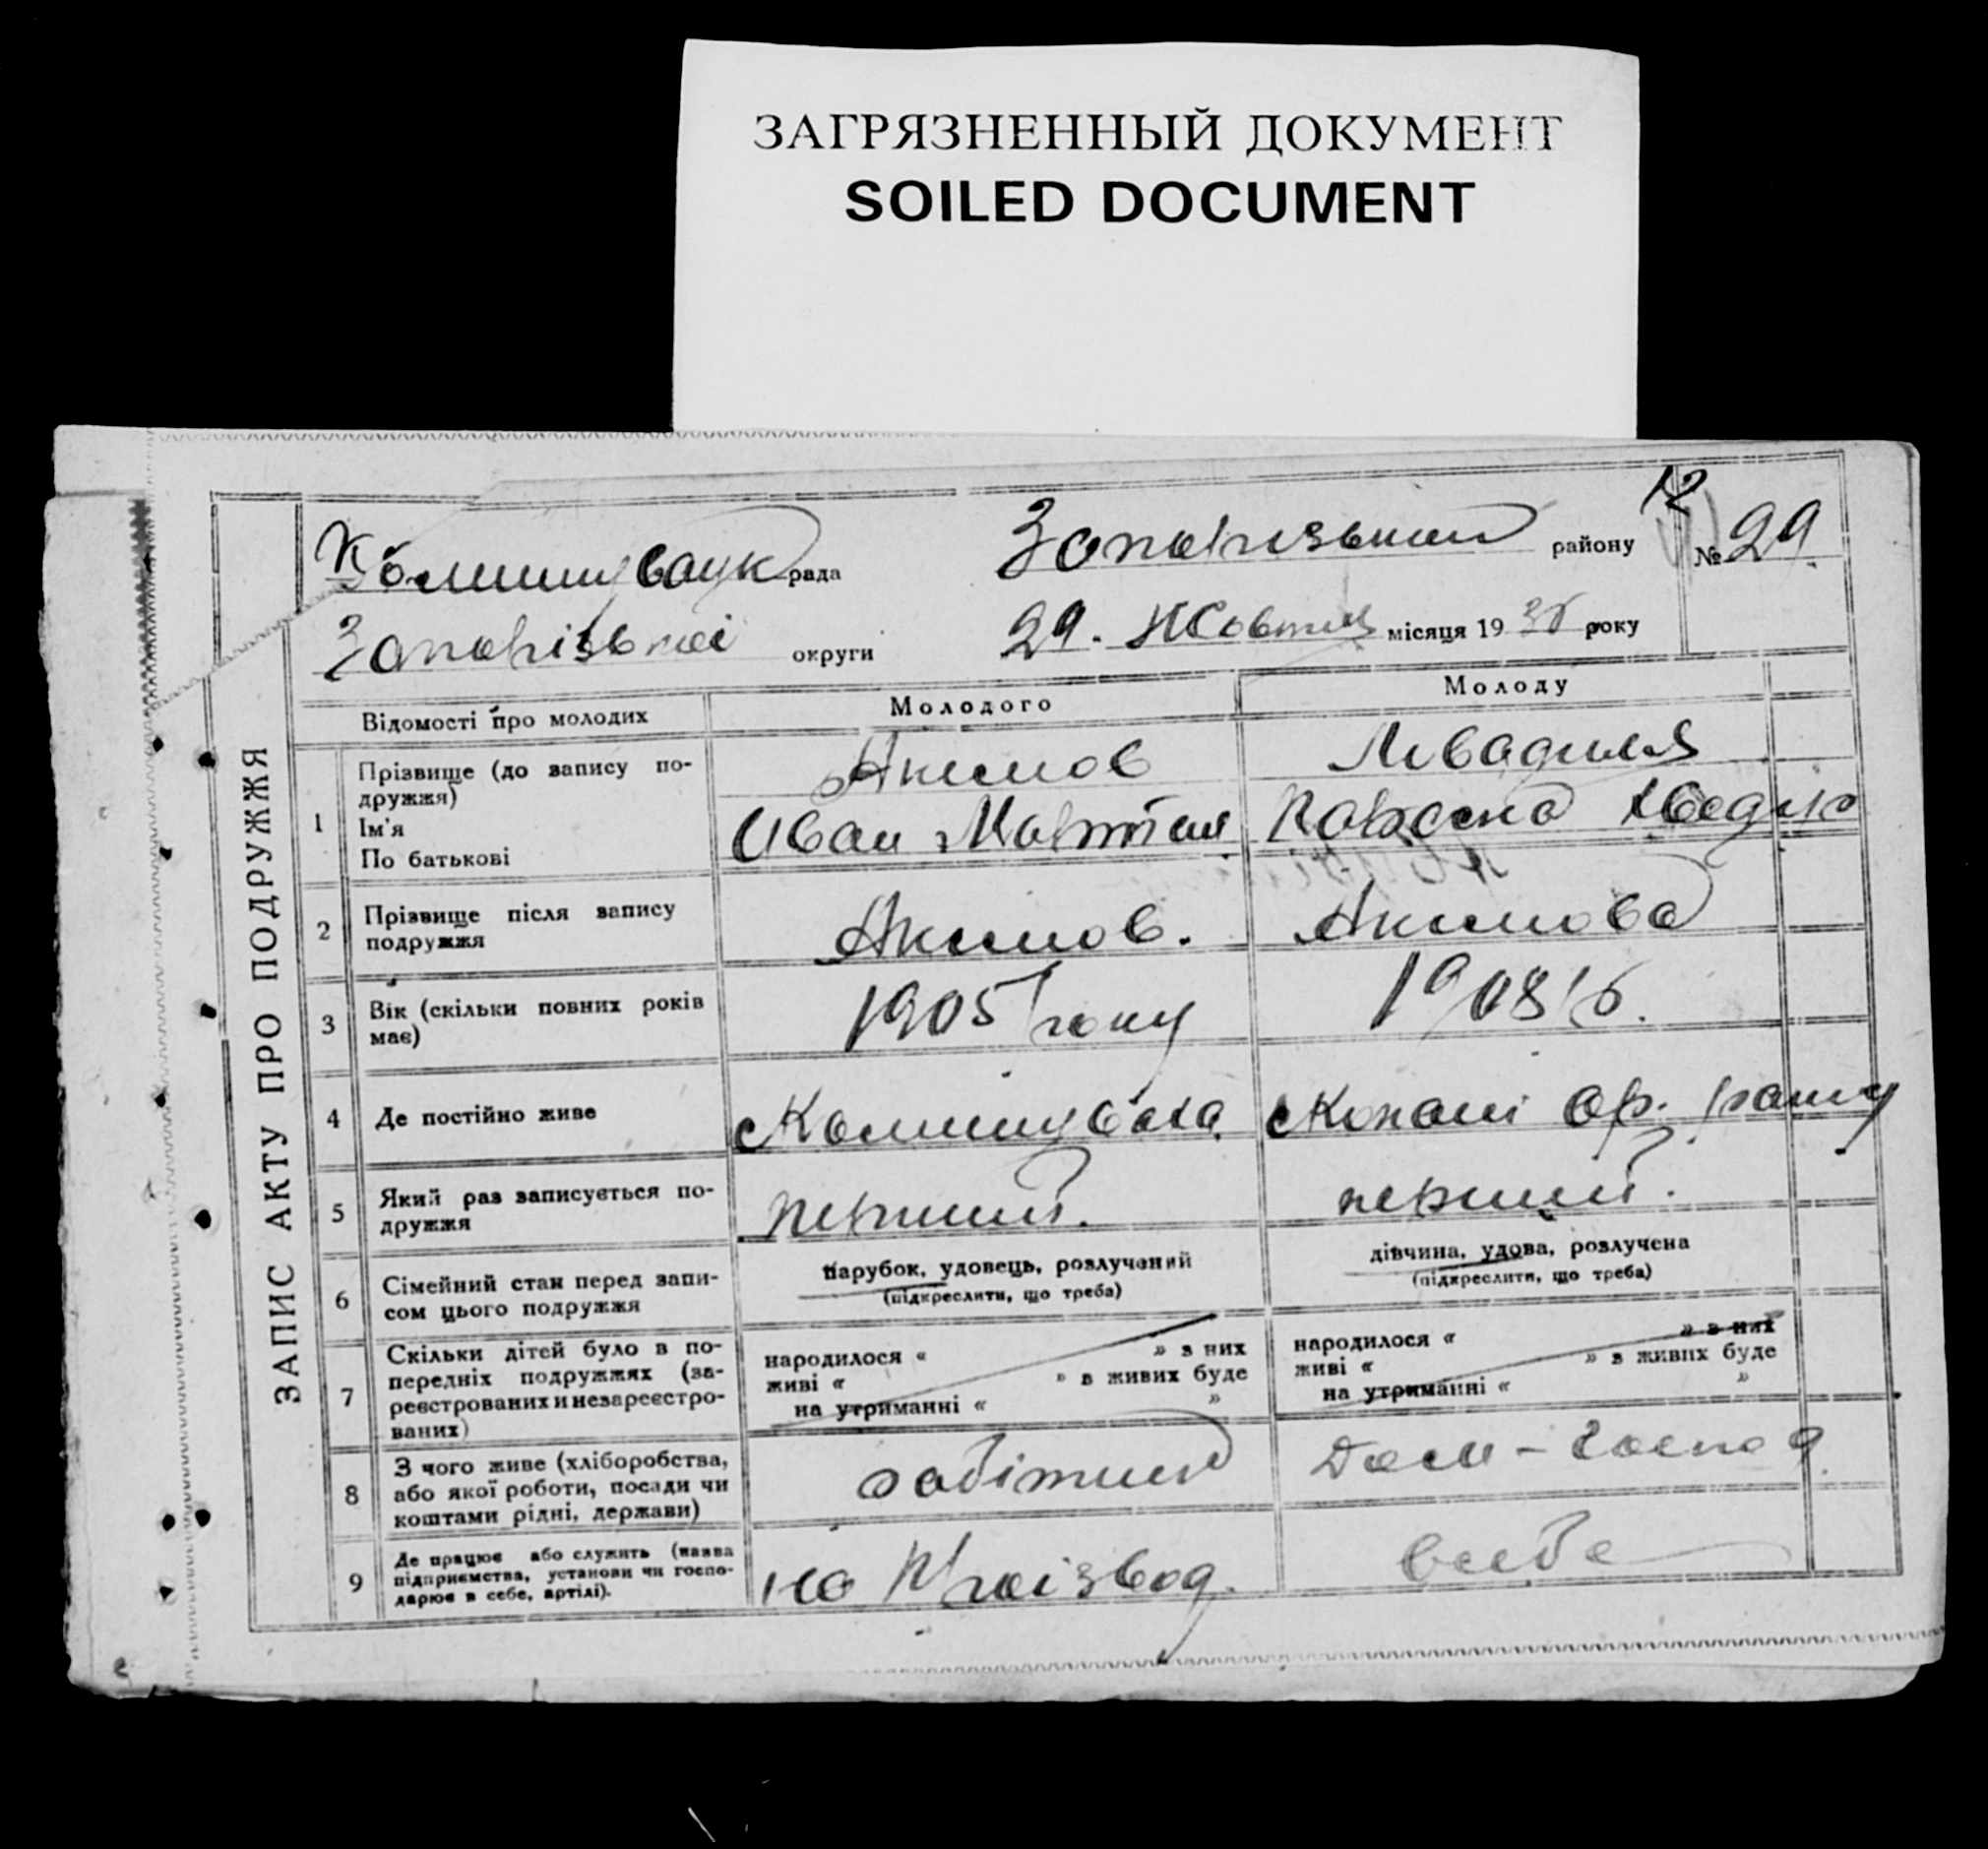 ЗАГРЯЗНЕННЫЙ ДОКУМЕНТ
SOILED DOCUMENT
12
рада района району № 29
Запорізької округи 29. Жовтня місяця 19 року
ЗАПИС АКТУ ПРО ПОДРУЖЖЯ
Відомості про молодих Молодого Молоду
1 Прізвище (до запису подружжя) Акимов
Ім'я Иван
По батькові
2 Прізвище після запису подружжя Акимов. Акимова
3 Вік (скільки повних років має) 1905 року 1908
4 Де постійно живе Ор. району
5 Який раз записується подружжя перший. перший.
6 Сімейний стан перед записом цього подружжя парубок, удовець, розлучений дівчина, удова, розлучена
(підкреслити, що треба) (підкреслити, що треба)
7 Скільки дітей було в попередніх подружжях (зареєстрованих и незареєстрованих)
народилося « » з них народилося « » з них
живі « » в живих буде живі « » в живих буде
на утриманні « » на утриманні « »
8 З чого живе (хліборобства, або якої роботи, посади чи коштами рідні, держави) робітник Дом-господ.
9 Де працює або служить (назва підприємства, установи чи господарює в себе, артілі). на Производ. в себе